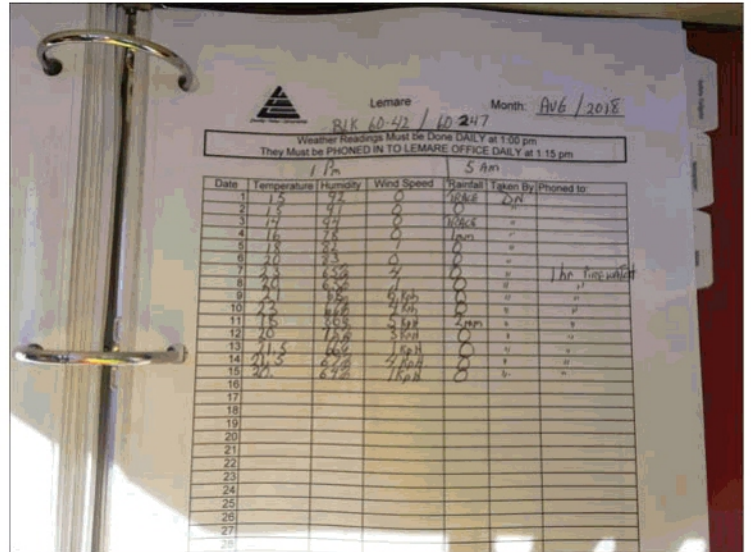 Lemare
Month: AUG / 2018
BLK 60-42 / 60 247
Weather Readings Must be Done DAILY at 1:00 pm
They Must be PHONED IN TO LEMARE OFFICE DAILY at 1:15 pm
1 Pm 5 Am
Date Temperature Humidity Wind Speed Rainfall Taken By Phoned to:
1 15 92 0 TRACE DN
2 15 94 0 0 "
3 14 94 0 TRACE "
4 16 78 0 1mm "
5 18 82 1 0 "
6 20 83 0 0 "
7 23 65% 4 0 " 1 hr FIREWATCH
8 20 65% 1 0 " "
9 21 0 " "
10 23 0 " "
11 18 2mm " "
12 20 0 " "
13 21.5 KpH 0 " "
14 4 KpH 0 " "
15 20. 64% 1 KpH 0 " "
16
17
18
19
20
21
22
23
24
25
26
27
28